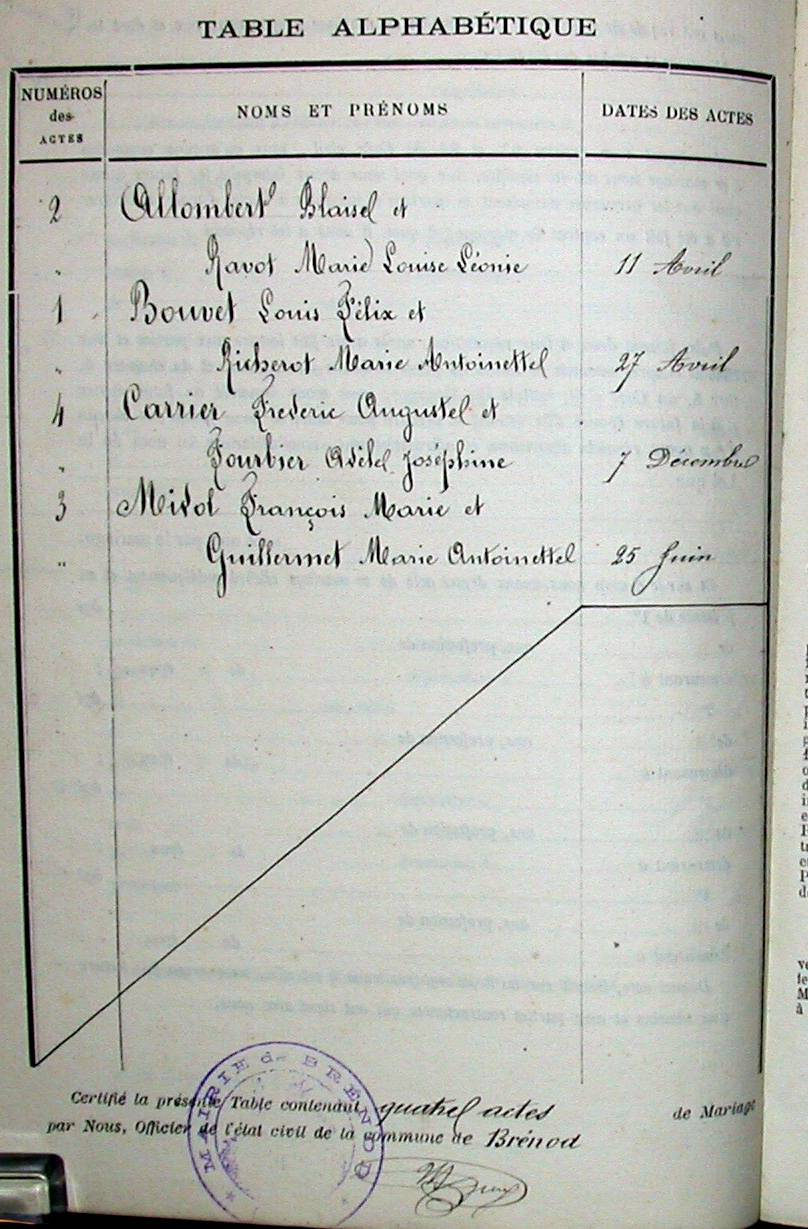 TABLE ALPHABÉTIQUE
NUMÉROS des ACTES
NOMS ET PRÉNOMS
DATES DES ACTES
2 Allombert Blaise et
" Ravot Marie Louise Léonie 11 Avril
1 Bouvet Louis Félix et
" Richerot Marie Antoinette 27 Avril
4 Carrier Frederic Auguste et
" Fourbier Adèle Joséphine 7 Décembre
3 Midol François Marie et
" Guillermet Marie Antoinette 25 Juin
Certifié la présente Table contenant quatre actes de Mariage
par Nous, Officier de l'état civil de la commune de Brénod
MAIRIE de BRÉNOD